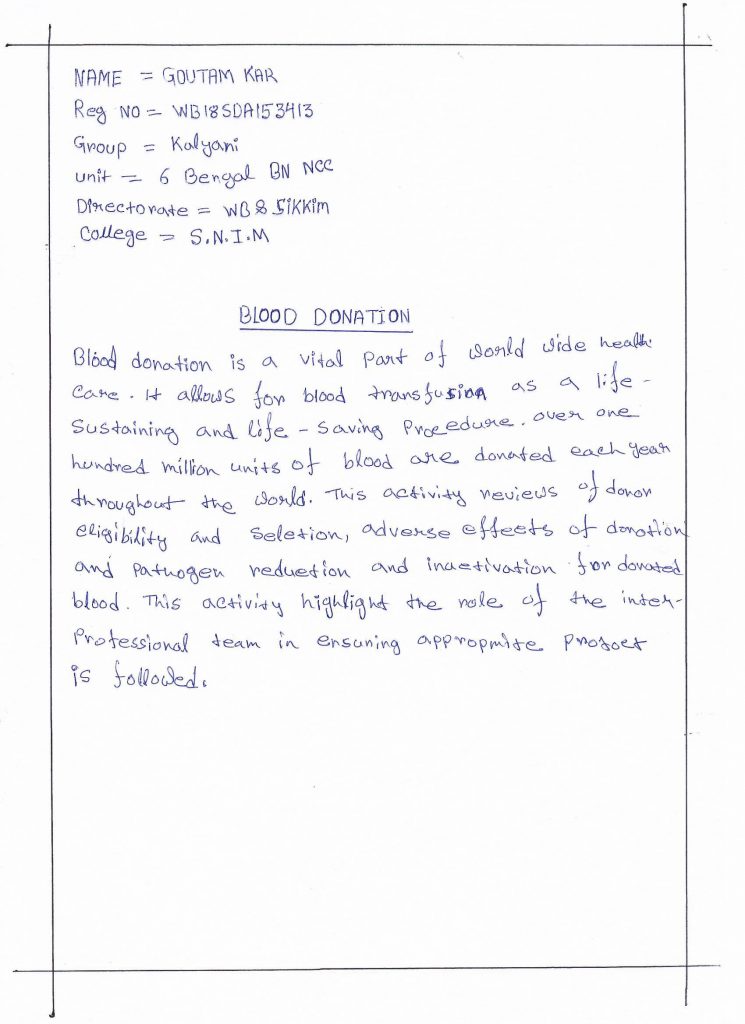 NAME = GOUTAM KAR
Reg NO = WB18SDA153413
Group = Kalyani
unit = 6 Bengal BN NCC
Directorate = WB & SIKKIM
College = S.N.I.M
BLOOD DONATION
Blood donation is a vital part of world wide health
care. It allows for blood transfusion as a life-
sustaining and life-saving procedure. over one
hundred million units of blood are donated each year
throughout the world. This activity reviews of donor
eligibility and seletion, adverse effects of donation
and pathogen reduction and inactivation for donated
blood. This activity highlight the role of the inter-
Professional team in ensuring appropmite protoct
is followed.